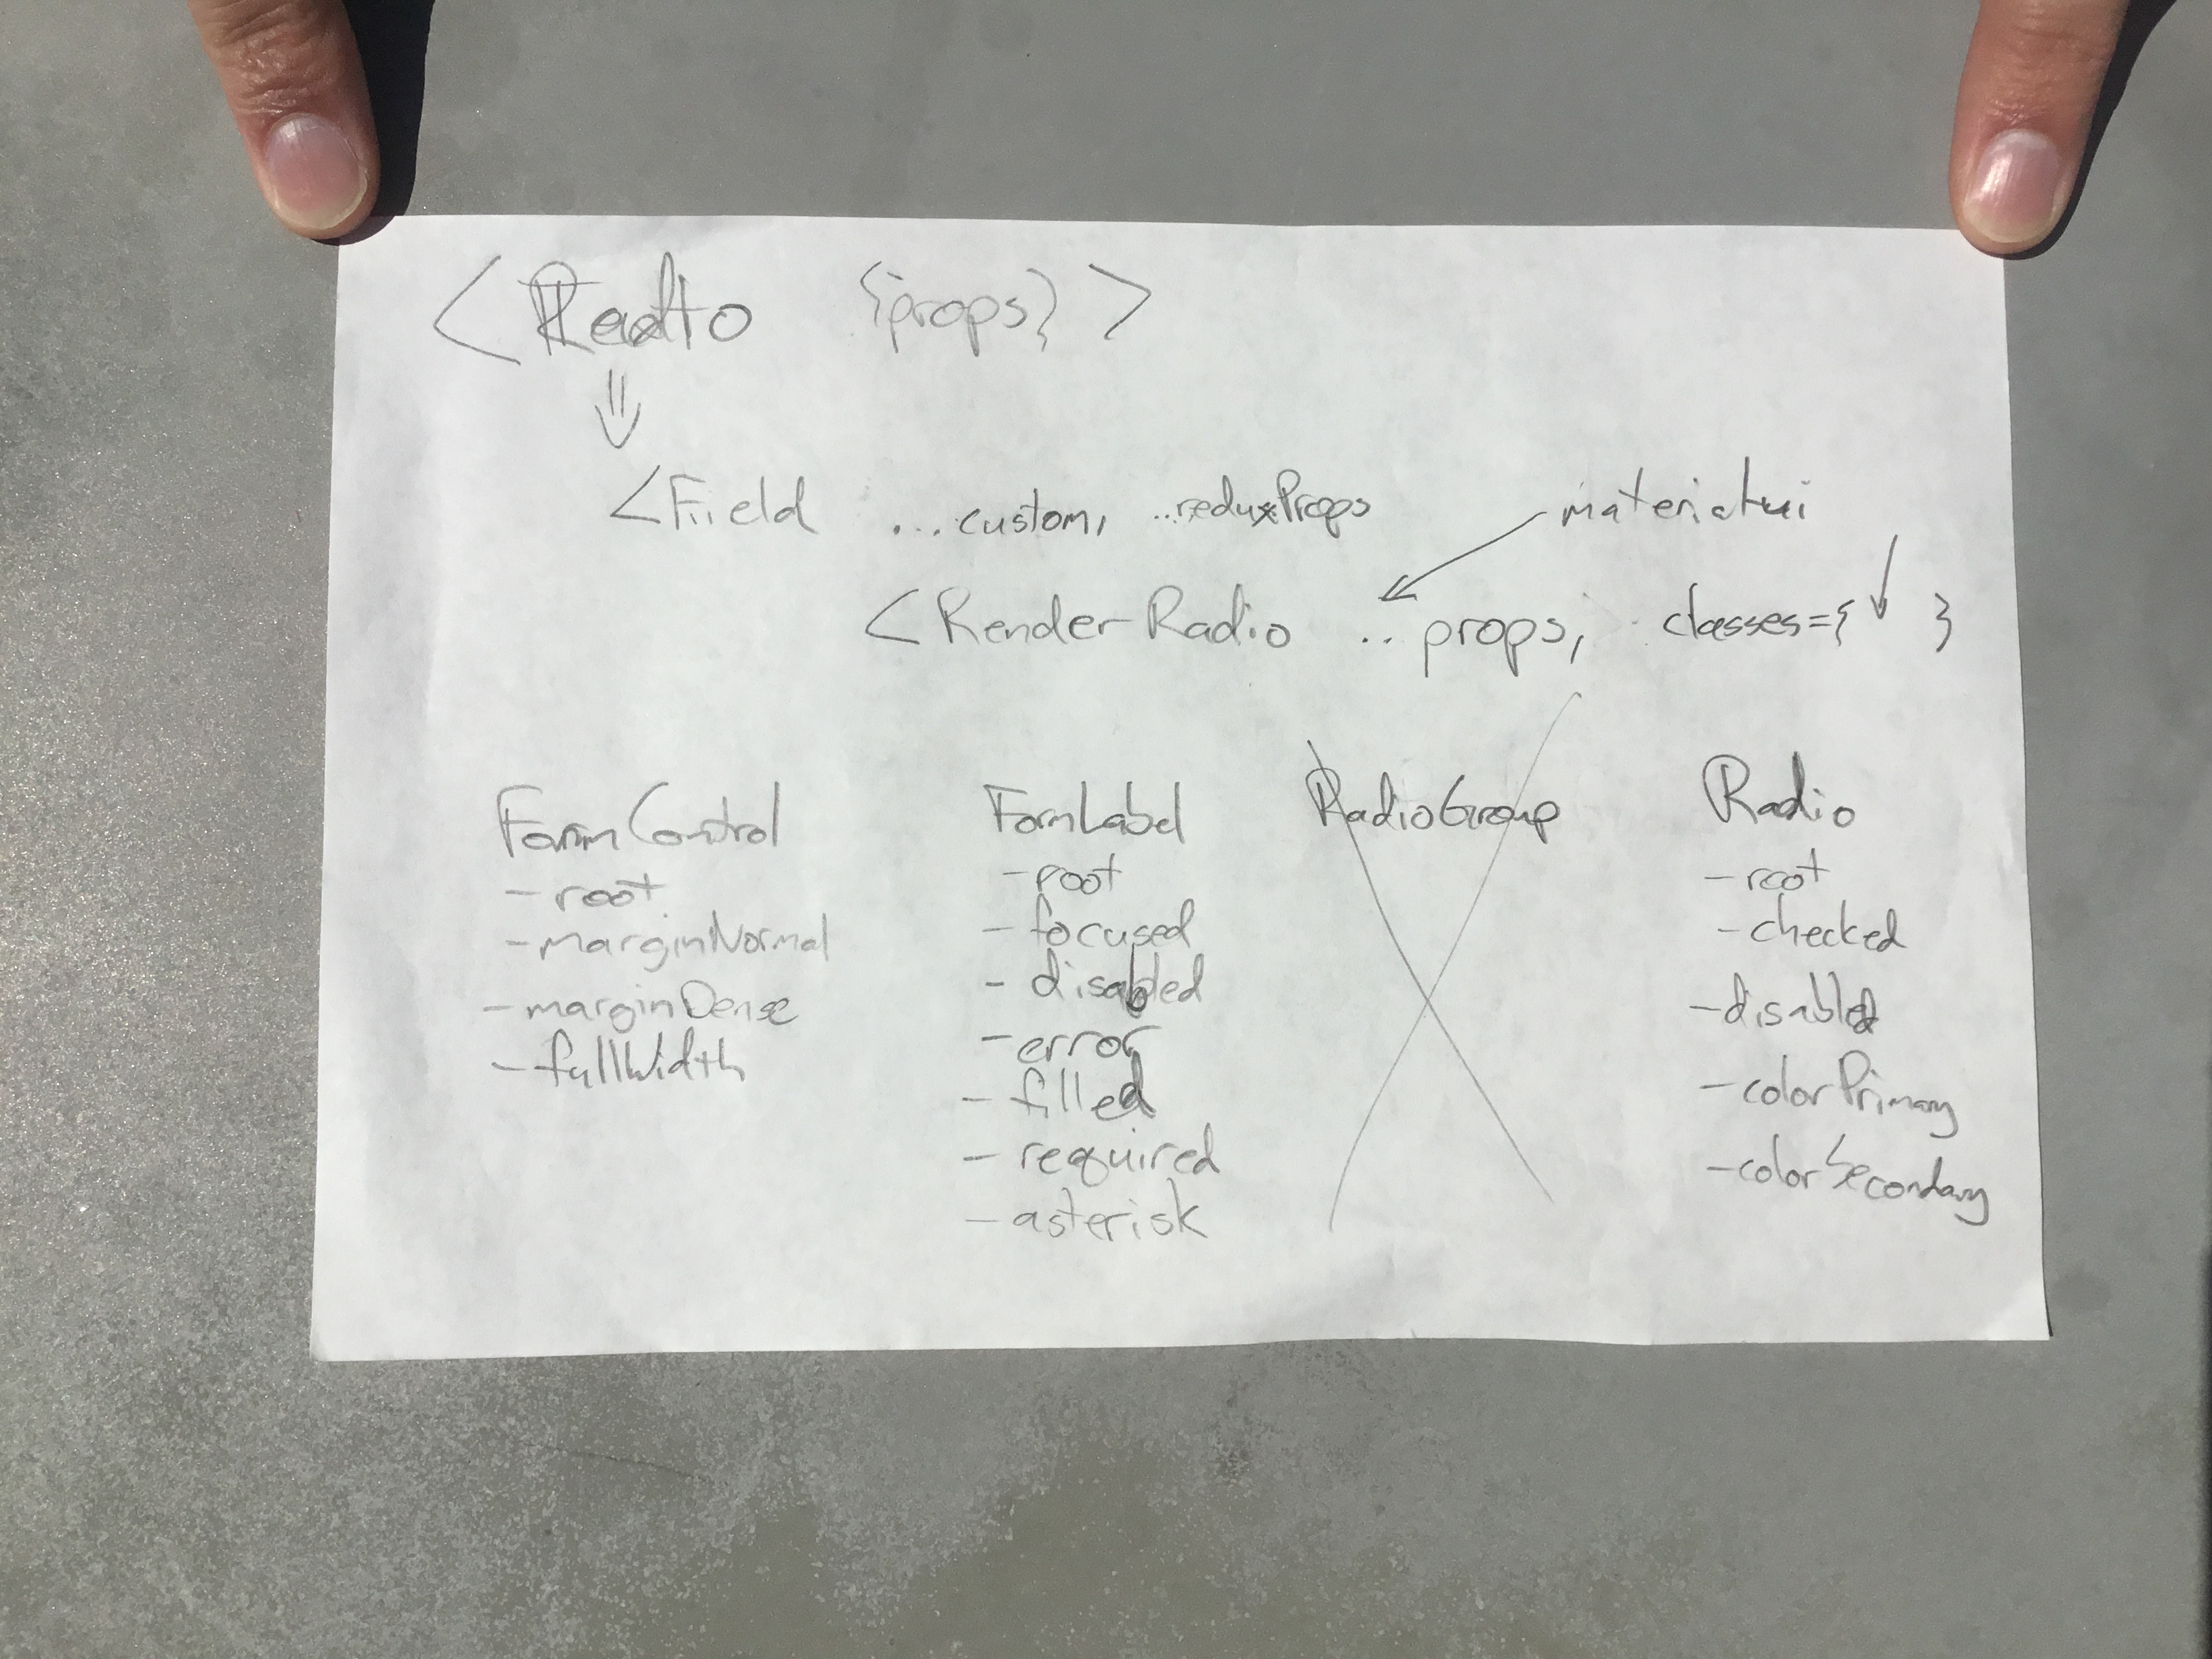 <Radio {props}>
⇓
materialui
<Field ...custom, ...reduxProps
<RenderRadio ...props, classes={ }
FormControl
- root
- marginNormal
- marginDense
- fullWidth
FormLabel
- root
- focused
- disabled
- error
- filled
- required
- asterisk
RadioGroup
Radio
- root
- checked
- disabled
- colorPrimary
- colorSecondary